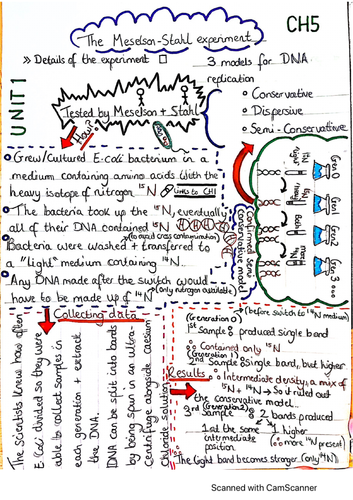 The Meselson-Stahl experiment
CH5
UNIT 1
» Details of the experiment
3 models for DNA
replication
Conservative
Dispersive
Semi-Conservative
Tested by Meselson + Stahl
How?
Grew/Cultured E-coli bacterium in a
medium containing amino acids with the
heavy isotope of nitrogen ¹⁵N
links to CH1
The bacteria took up the ¹⁵N, eventually
all of their DNA contained ¹⁵N
(to avoid cross contamination)
Bacteria were washed + transferred to
a "light" medium containing ¹⁴N.
Any DNA made after the switch would
have to be made up of ¹⁴N
(only nitrogen available)
Confirmed semi
conservative model
Gen 0
Gen 1
Gen 2
Gen 3...
Collecting data
The scientists knew how often
E-coli divided so they were
able to collect samples in
each generation + extract
the DNA.
DNA can be split into bands
by being spun in an ultra-
centrifuge alongside caesium
chloride solution
Results
(Generation 0)
(before switch to ¹⁴N medium)
1st Sample: produced single band
Contained only ¹⁵N
(Generation 1)
2nd Sample: Single band, but higher
Intermediate density; a mix of
¹⁵N + ¹⁴N → So it ruled out
the conservative model.
(Generation 2)
3rd Sample
2 bands produced
1 at the same
intermediate
position
1 higher
(more ¹⁴N present)
The light band becomes stronger (only ¹⁴N)
Scanned with CamScanner